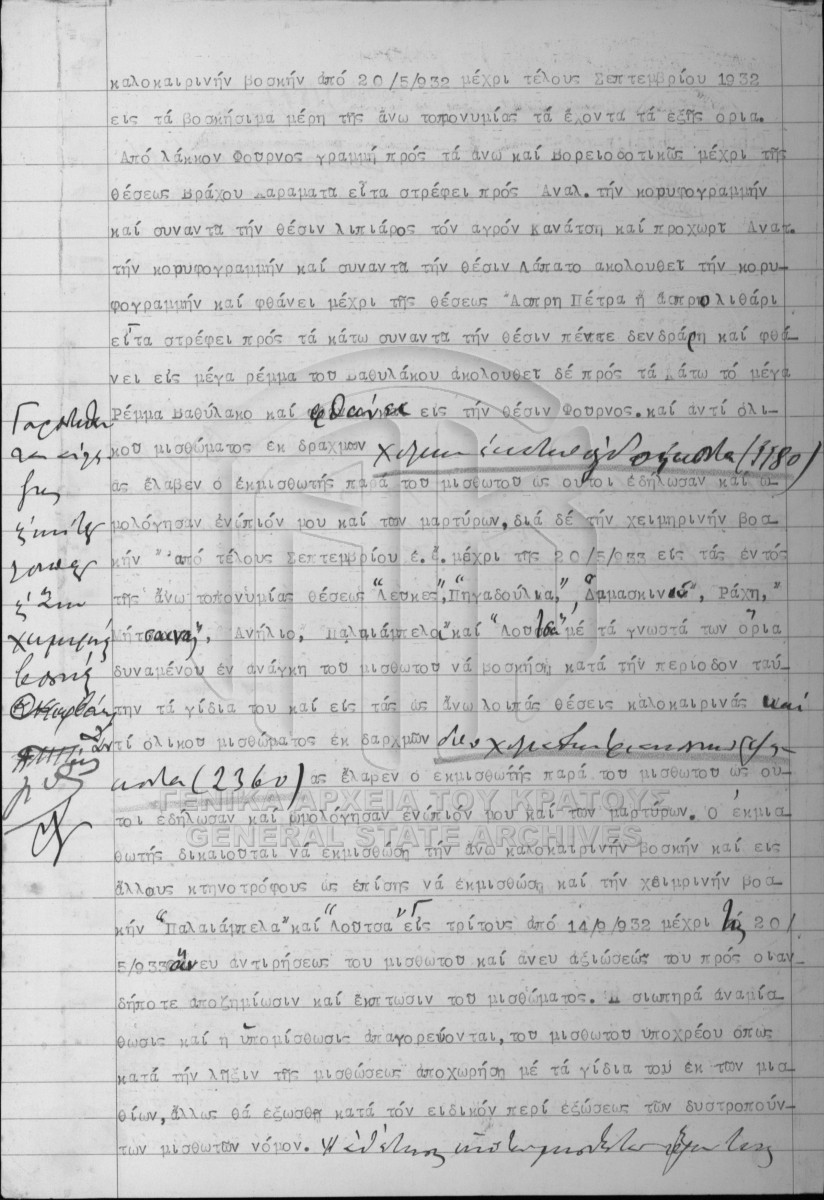 καλοκαιρινήν βοσκήν ἀπό 20/5/932 μέχρι τέλους Σεπτεμβρίου 1932
εις τά βοσκήσιμα μέρη τῆς ἄνω τοπονυμίας τά ἔχοντα τά ἑξῆς ὅρια.
Από λάκκον Φουρνος γραμμή πρός τά ἄνω καί Βορειοδοτικῶς μέχρι τῆς
θέσεως Βράχου Καραματα εἶτα στρέφει πρός Αναλ. τήν κορυφογραμμήν
καί συναντα τήν θέσιν λιπιάρος τόν αγρόν Κανάτση καί προχωρτ Ανατ.
τήν κορυφογραμμήν καί συναντα τήν θέσιν Λάπατο ακολουθετ τήν κορυ-
φογραμμήν καί φθάνει μέχρι τῆς θέσεως Ασπρη Πέτρα ἤ ἀσπρολιθάρι
εἶτα στρέφει πρός τά κάτω συναντα τήν θέσιν πέντε δενδράρη καί φθά-
νει εἰς μέγα ρέμμα του Βαθυλάκου ἀκολουθετ δέ πρός τά κάτω τό μέγα
Ρέμμα Βαθύλακο καί φθάνει εἰς τήν θέσιν Φουρνος.καί ἀντί ὁλι-
κου μισθώματος εκ δραχμων χιλίων ἑκατόν ὀγδοήκοντα (1180)
ἅς ἔλαβεν ὁ ἐκμισθωτής παρά του μισθωτου ὡς ουτοι ἐδήλωσαν καί ω-
μολόγησαν ἐνώπιόν μου καί των μαρτύρων,διά δέ τήν χειμηρινήν βοσ-
κήν ἀπό τέλους Σεπτεμβρίου ἐ.ἔ.μέχρι τῆς 20/5/933 εἰς τάς ἐντός
τῆς ἄνω τοπονυμίας θέσεως "Λέσκες","Πηγαδούλια","Δαμασκινιά", Ράχη,"
Μήτσαινας", Ανήλιο, Παλαιάμπελα καί "Λουτσα" μέ τά γνωστά των ὅρια
δυναμένου ἐν ἀνάγκη του μισθωτου νά βοσκήση κατά τήν περίοδον ταύ-
την τά γίδια του καί εἰς τάς ὡς ἄνω λοιπάς θέσεις καλοκαιρινάς καί
ἀντί ὁλικου μισθώματος ἐκ δαρχμῶν δύο χιλιάδων τριακοσίων ἑξή-
κοντα (2360) ας ἔλαρεν ὁ εκμισθωτής παρά του μισθωτου ὡς ου-
τοι ἐδήλωσαν καί ὡμολόγησαν ἐνώπιόν μου καί των μαρτύρων. Ο ἐκμισ-
θωτής δικαιουται νά ἐκμισθώση τήν ἄνω καλοκαιρινήν βοσκήν καί εις
ἄλλους κτηνοτρόφους ὡς ἐπίσης νά ἐκμισθώση καί τήν χειμρινήν βοσ-
κήν "Παλαιάμπελα" καί "Λουτσα" εἰς τρίτους ἀπό 14/9/932 μέχρι τῆς 20/
5/933 ἄνευ ἀντιρήσεως του μισθωτου καί ἀνευ ἀξιώσεώς του πρός οιαν-
δήποτε ἀποζημίωσιν καί ἔκπτωσιν του μισθώματος. Η σιωπηρά ἀναμίσ-
θωσις καί η ὑπομίσθωσις ἀπαγορεύονται,του μισθωτου υποχρέου ὅπως
κατά τήν λῆξιν τῆς μισθώσεως ἀποχωρήση μέ τά γίδια του ἐκ των μισ-
θίων,ἄλλως θά ἐξωσθη κατά τόν ειδικόν περί ἐξώσεως τῶν δυστροπούν-
των μισθωτων νόμον.
χειμερινής
βοσκής
ΓΕΝΙΚΑ ΑΡΧΕΙΑ ΤΟΥ ΚΡΑΤΟΥΣ
GENERAL STATE ARCHIVES